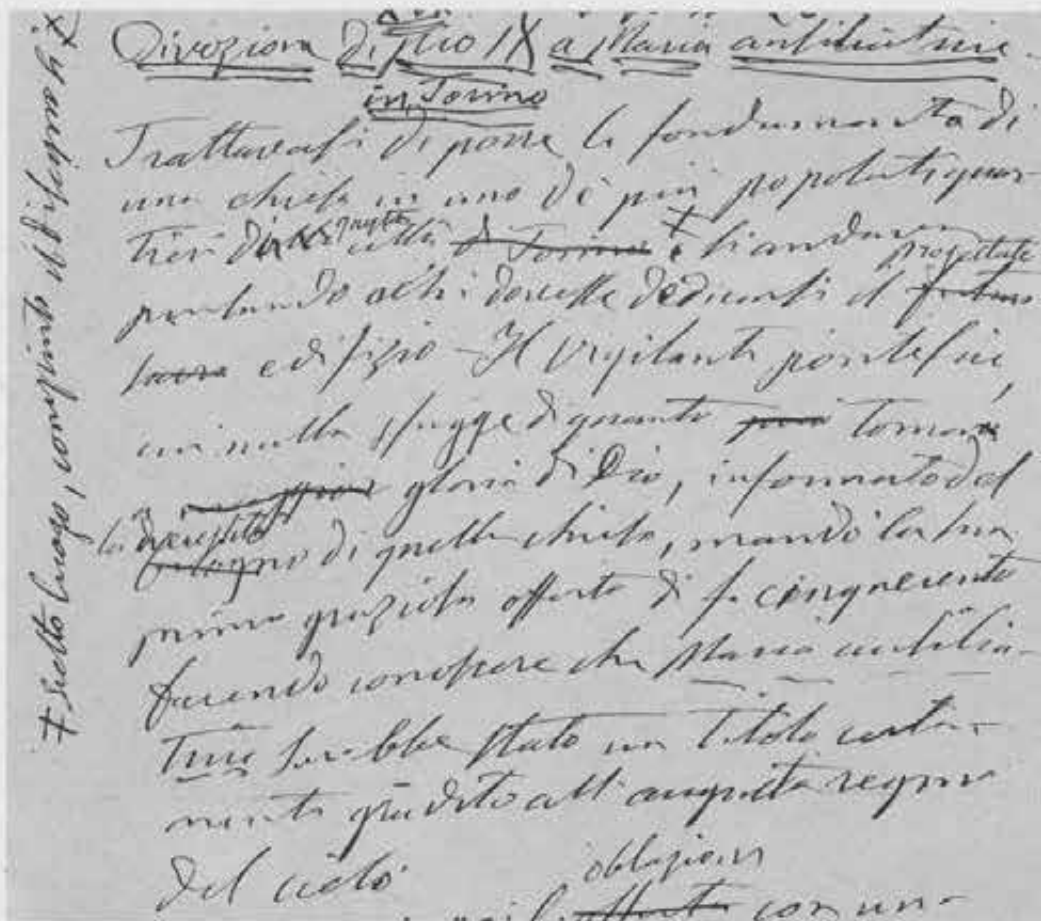 Divozione di Pio IX a Maria ausiliatrice
in Torino
Trattavasi di porre le fondamenta di
una chiesa in uno de' più popolati quar
tieri di questa città di Torino e si andava
portando altri dovesse dedicarsi il progettato
sacro edifizio - Il vigilante pontefice,
cui nulla sfugge di quanto può tornare
gloria di Dio, informato del
la necessità bisogno di quella chiesa, mandò la sua
prima graziosa offerta di f. cinquecento
facendo conoscere che Maria ausilia-
trice sarebbe stato un titolo certa-
mente gradito all'augusta regina
del cielo
oblazione
offerta con un-
+ scelto luogo, compiuto il disegno, i